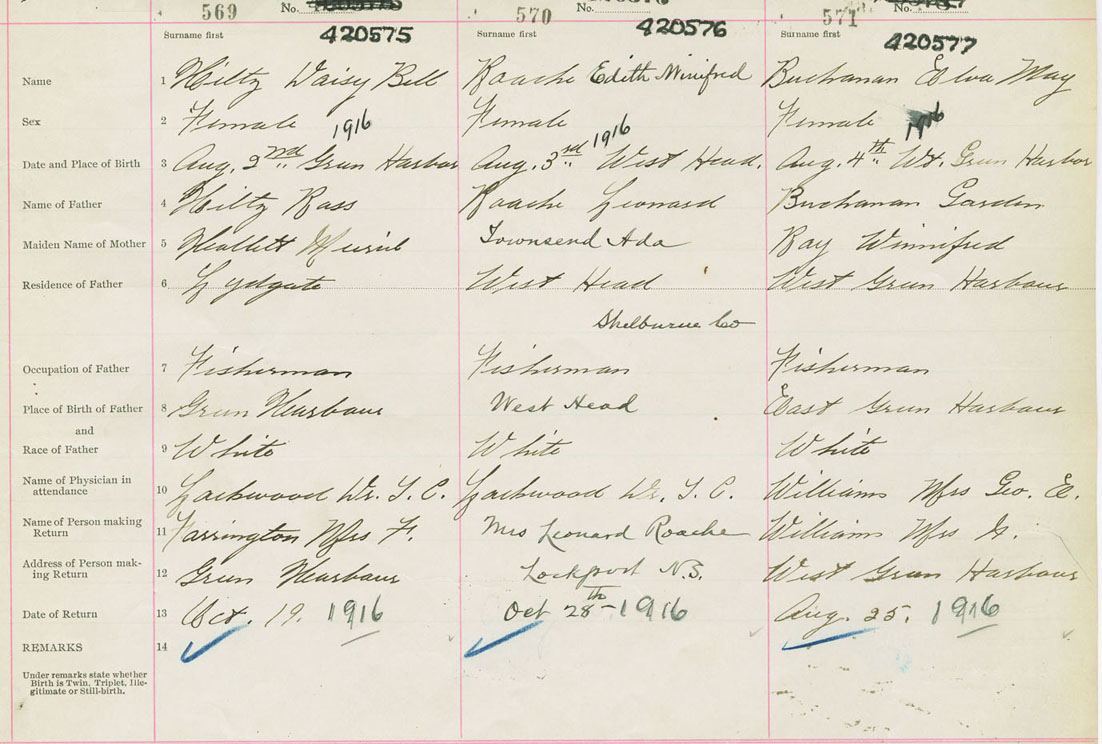 569 No. 570 No. 571 No.
Surname first 420575 Surname first 420576 Surname first 420577
Name 1 Hiltz Daisy Bell Roache Edith Winifred Buchanan Elva May
Sex 2 Female 1916 Female 1916 Female 1916
Date and Place of Birth 3 Aug. 2nd Green Harbor Aug. 3rd West Head. Aug. 4th Wt. Green Harbor
Name of Father 4 Hiltz Ross Roache Leonard Buchanan Gordon
Maiden Name of Mother 5 Townsend Ada Ray Winnifred
Residence of Father 6 Lydgate West Head West Green Harbour
Shelburne Co
Occupation of Father 7 Fisherman Fisherman Fisherman
Place of Birth of Father 8 Green Harbour West Head East Green Harbour
and
Race of Father 9 White White White
Name of Physician in attendance 10 Lockwood Dr. T. C. Lockwood Dr. T. C. Williams Mrs Geo. E.
Name of Person making Return 11 Farrington Mrs F. Mrs Leonard Roache Williams Mrs G.
Address of Person making Return 12 Green Harbour Lockport N.S. West Green Harbour
Date of Return 13 Oct. 19. 1916 Oct 28th - 1916 Aug. 25. 1916
REMARKS 14
Under remarks state whether
Birth is Twin, Triplet, Ille-
gitimate or Still-birth.